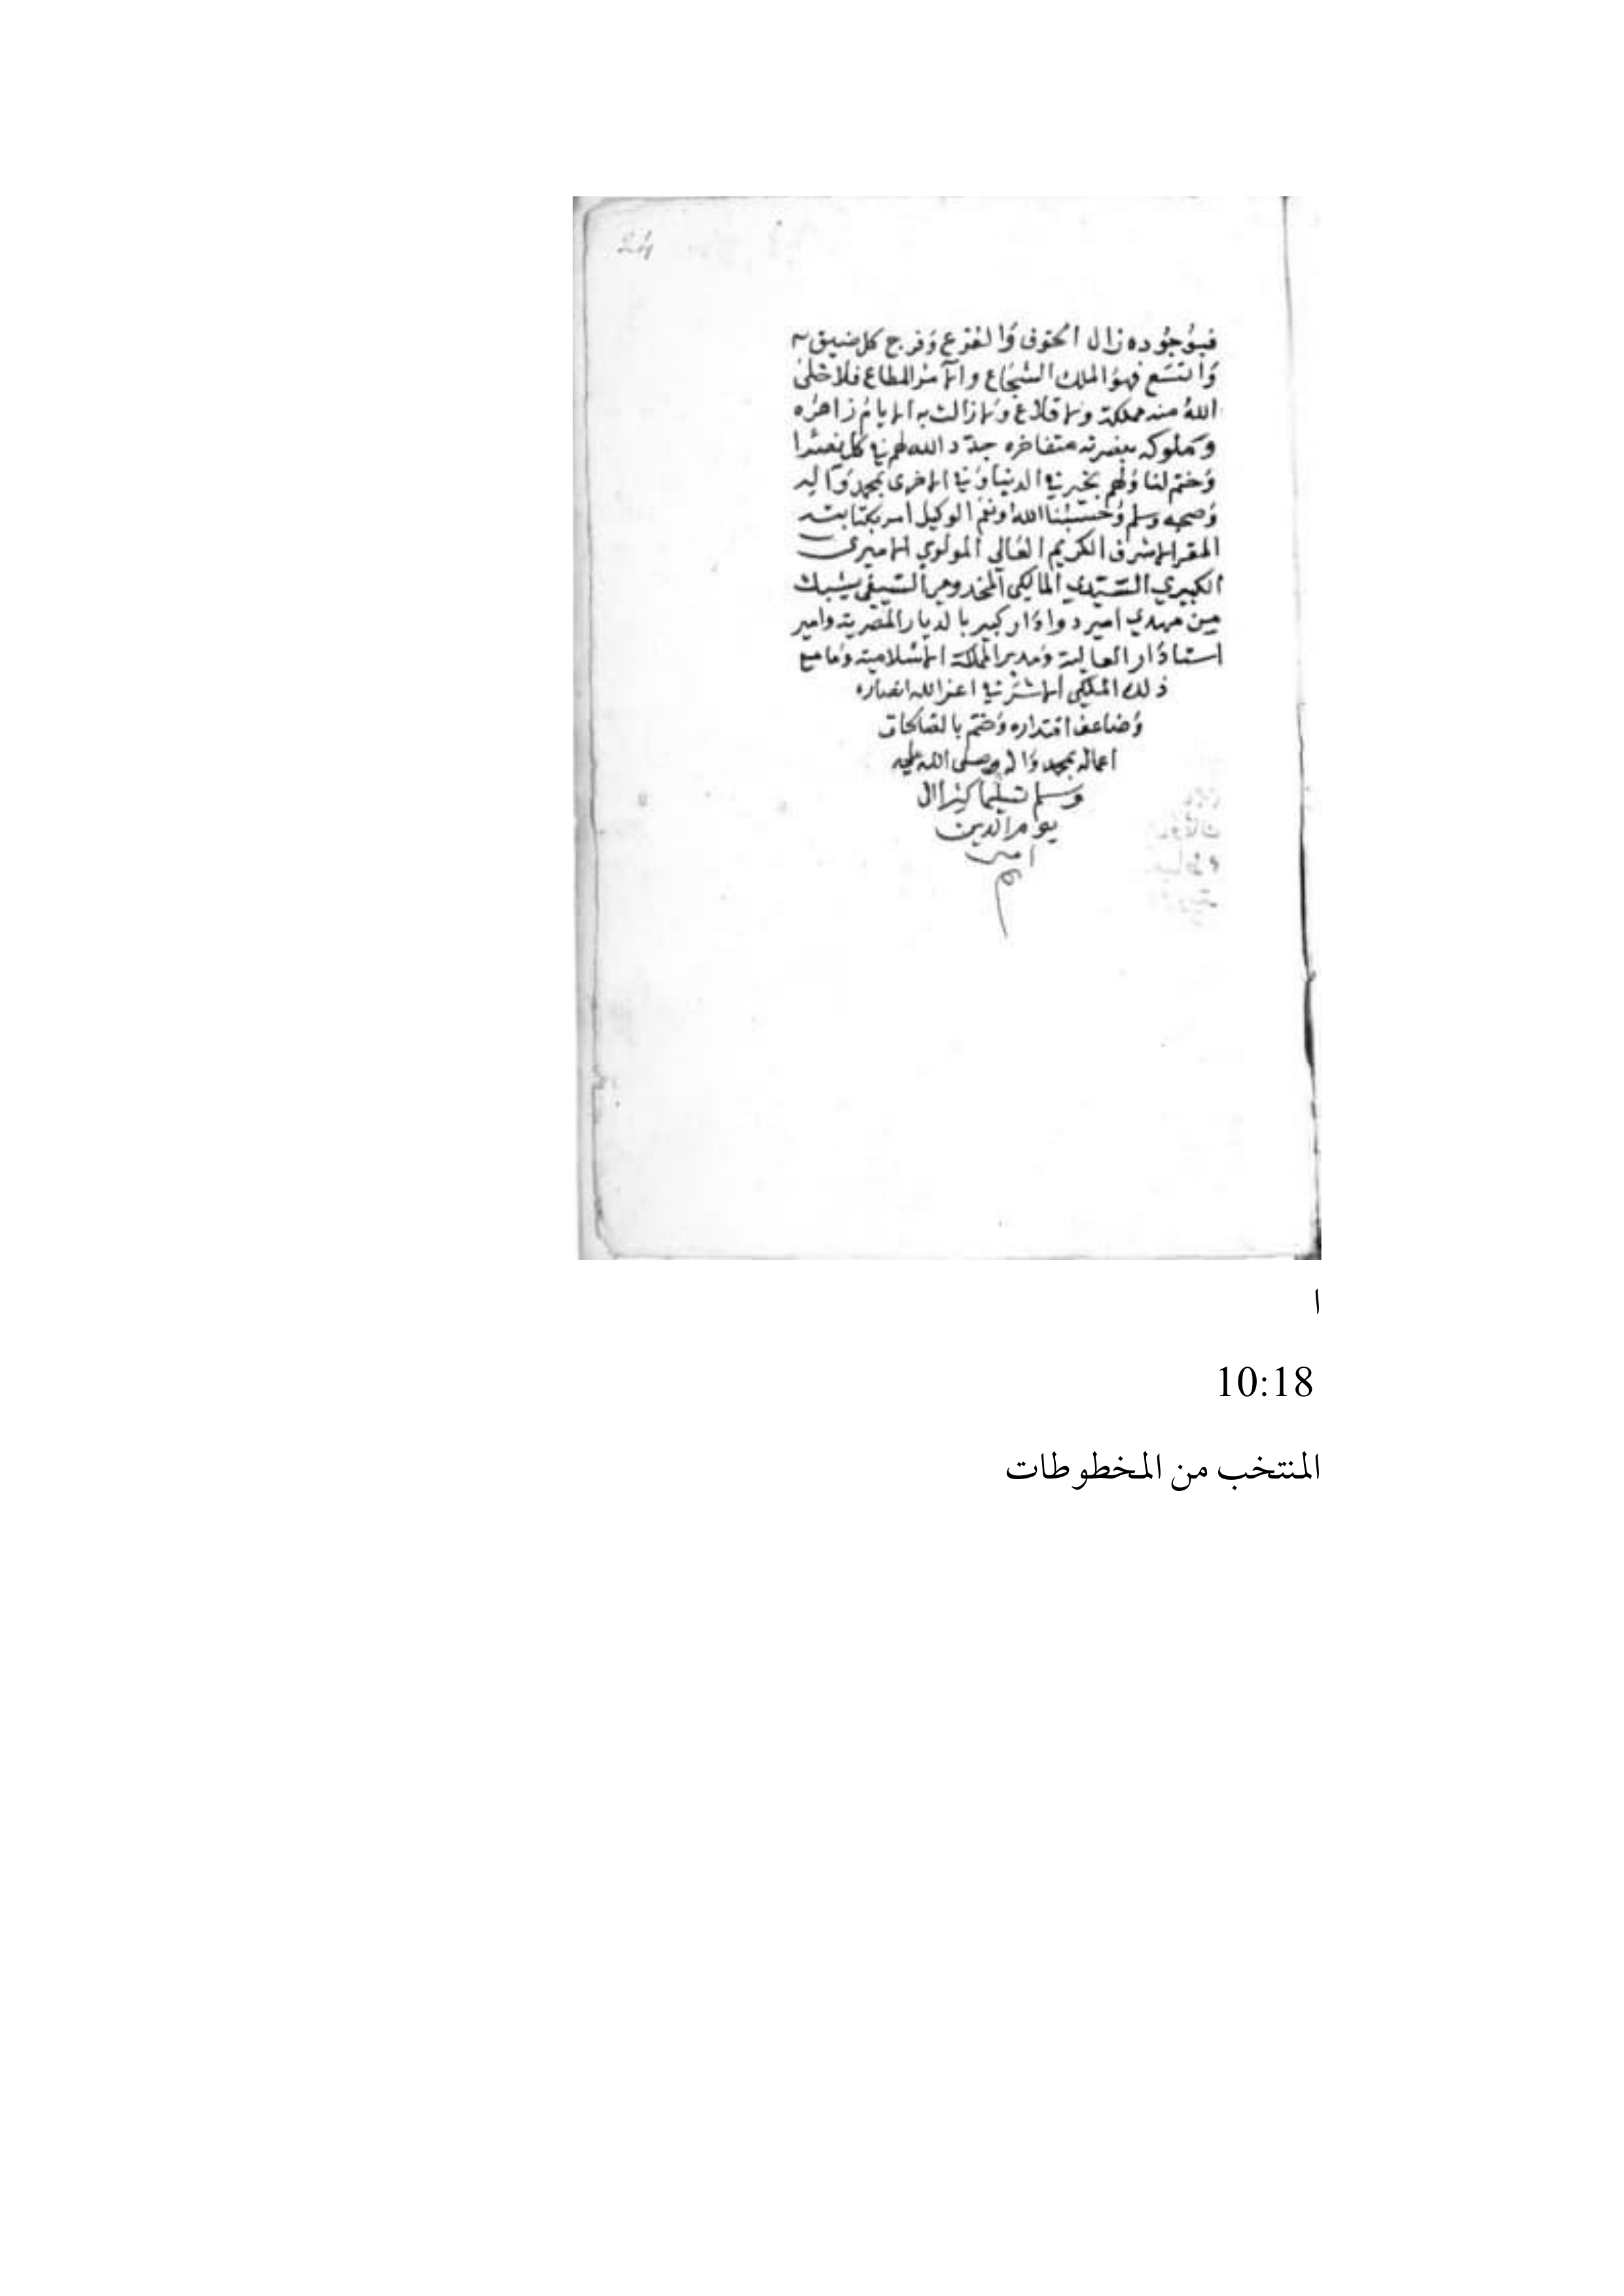 24
فبوُجُوده زال الخوف وَالفزع وَفرج كل ضيق
وَاتسَع فهوُ الملك الشجُاع والآمرُ المطاع فلا خلىُ
اللهُ منه مملكة ولا قلاع ولا زالت به الايامُ زاهرُه
ومملوكه بنصرته متفاخره جدّد الله لهم في كل
وَختم لنا وُلهم بخير في الدنيا وُفي الاخرى بمحمد وَاله
وُصحبه وسلم وُحسبُنا الله ونعم الوكيل امر بكتابته
المقر الاشرف الكريم العَالي المولوي الاميري
الكبيري السّيّدي المالكي المخدومي السّيفي يشبك
مِن مهدي امير دوادَار كبير بالديار المصرية وامير
استادُار العالية وُمدبر المملكة الاسلامية وُما مع
ذلك الملكي الاشرفي اعز الله انصاره
وُضاعف اقتداره وُختم بالصَالحات
اعماله بمحمد وَاله وصلى الله عليه
وسلم تسليما كثيرا الى
يوم الدين
امين
ا
10:18
المنتخب من المخطوطات